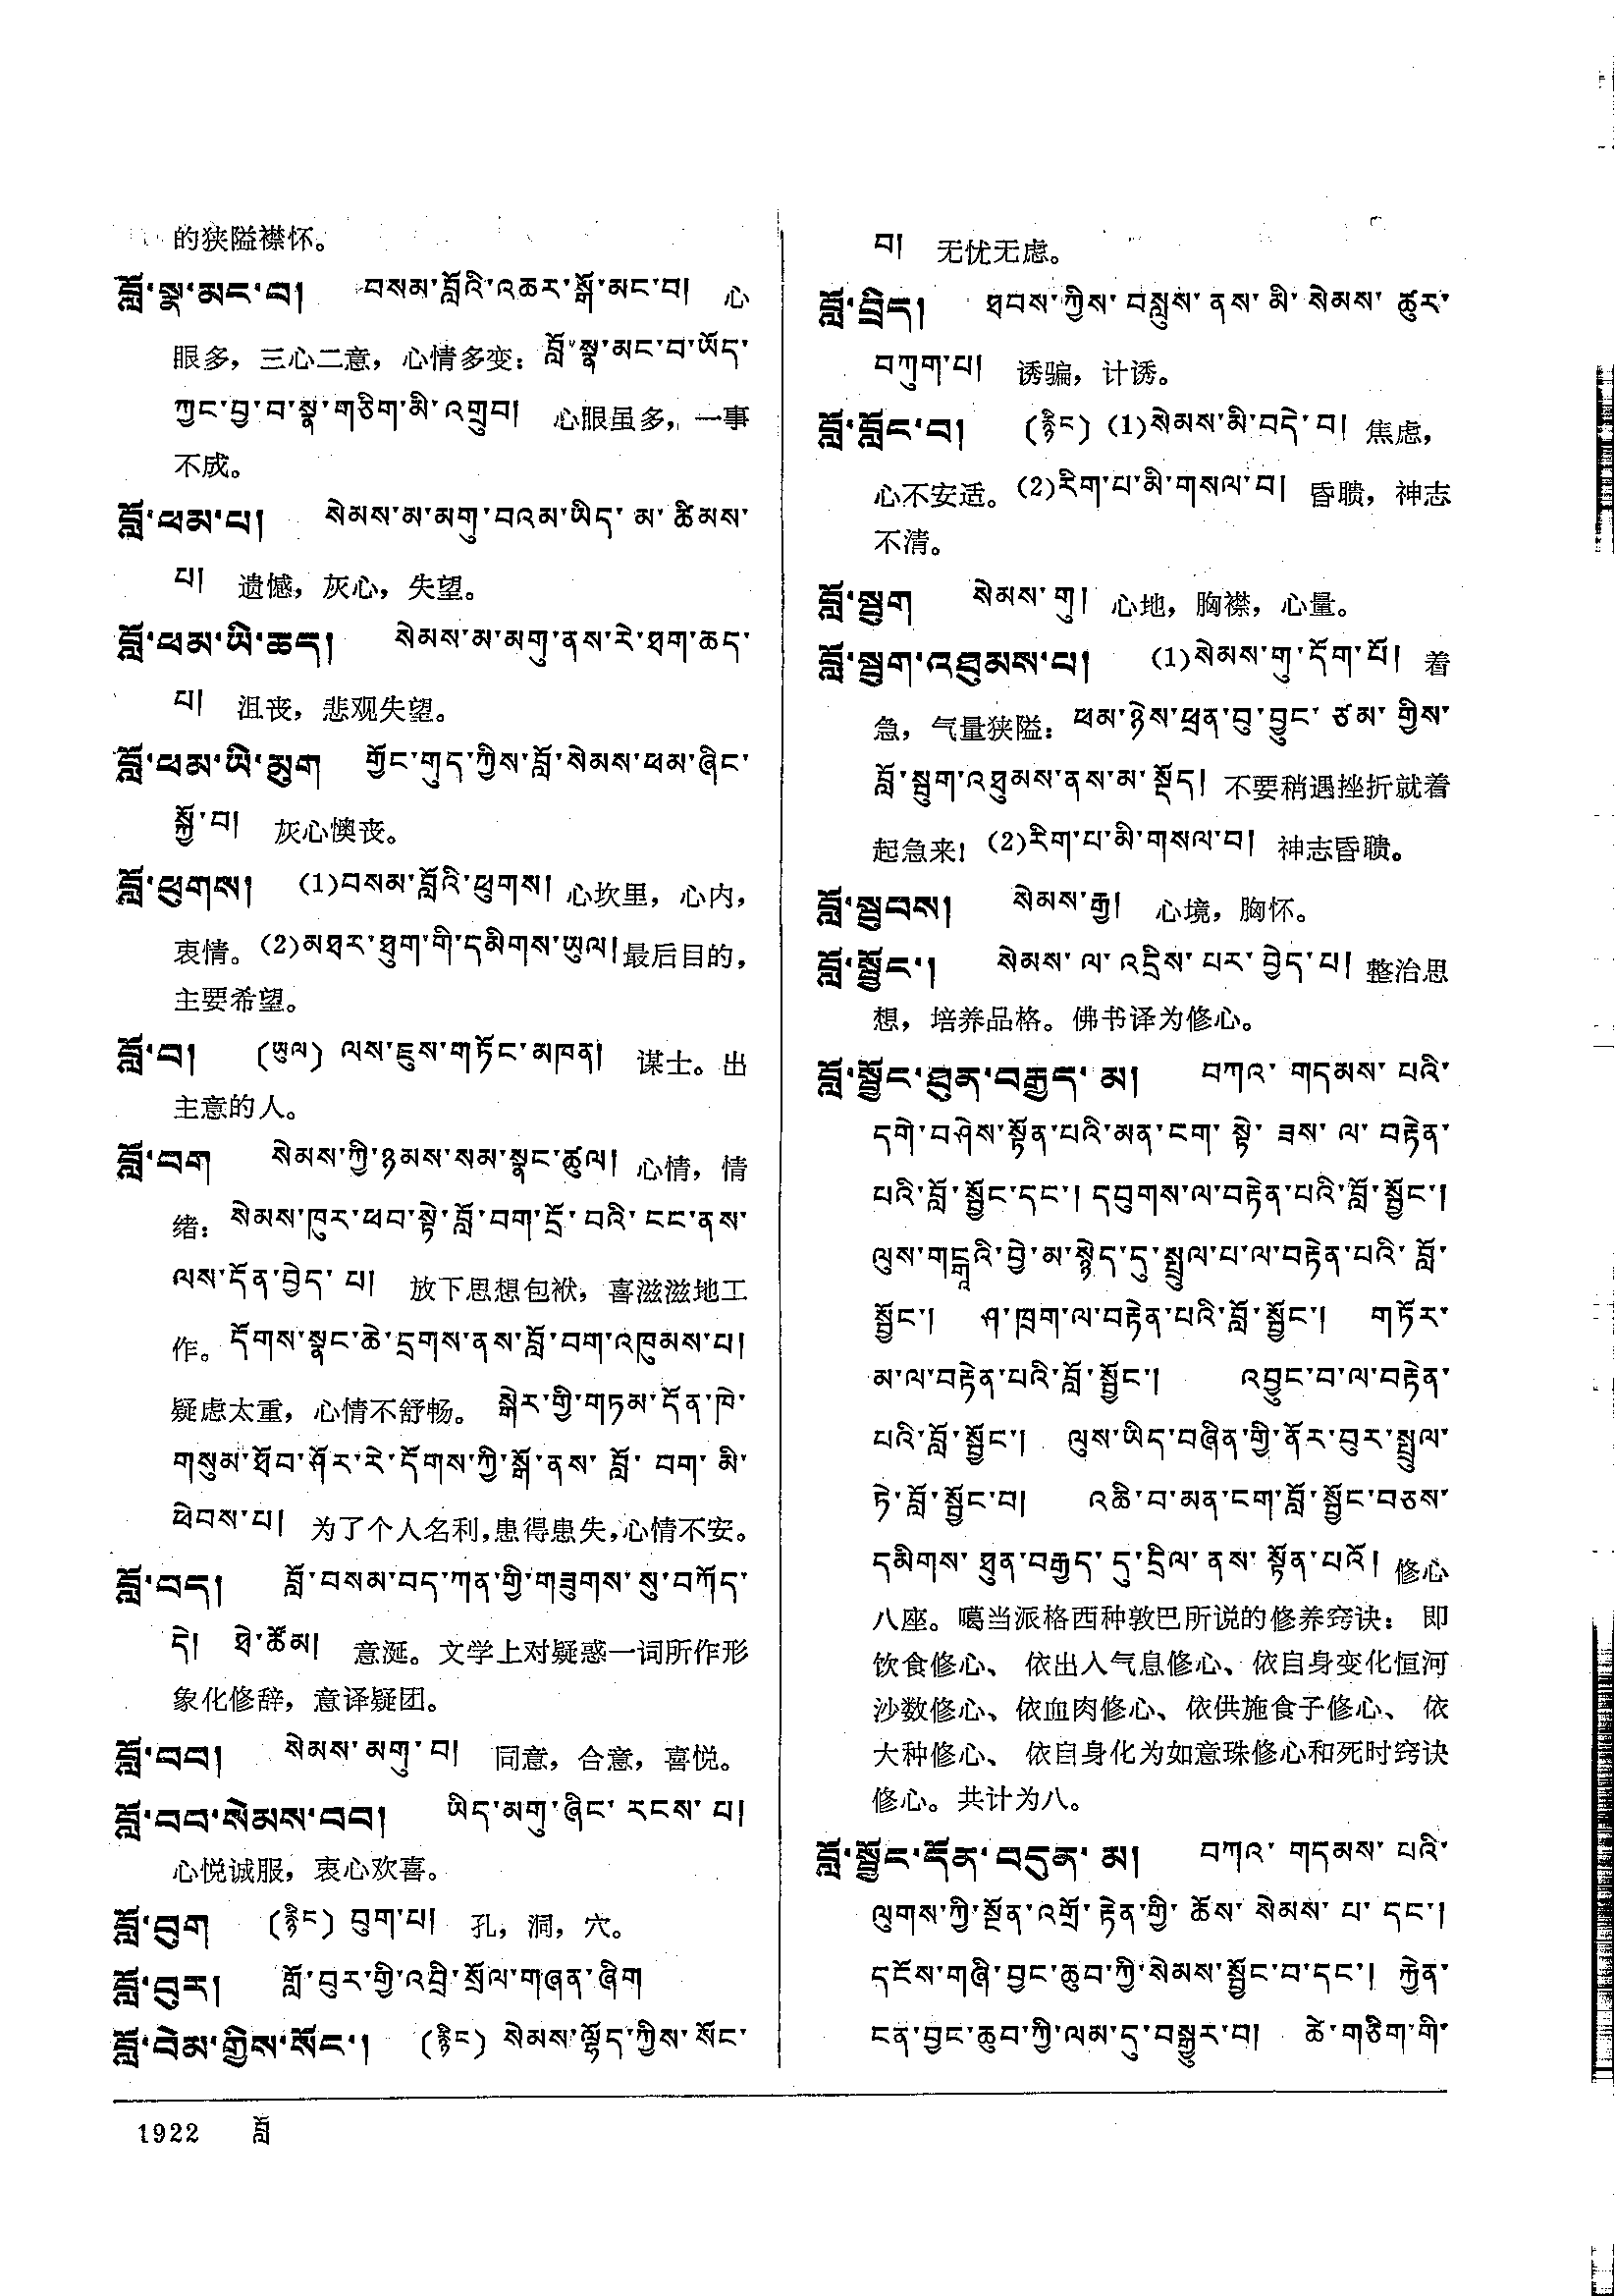 的狭隘襟怀。
བློ་སྣ་མང་བ། བསམ་བློའི་འཆར་སྒོ་མང་བ། 心
眼多，三心二意，心情多变：བློ་སྣ་མང་བ་ཡོད་
ཀྱང་བྱ་བ་སྣ་གཅིག་མི་འགྲུབ། 心眼虽多，一事
不成。
བློ་ཕམ་པ། སེམས་མ་མགུ་བའམ་ཡིད་མ་ཚིམས་
པ། 遗憾，灰心，失望。
བློ་ཕམ་ཡི་ཆད། སེམས་མ་མགུ་ནས་རེ་ཐག་ཆད་
པ། 沮丧，悲观失望。
བློ་ཕམ་ཡི་མུག གྱོང་གུད་ཀྱིས་བློ་སེམས་ཕམ་ཞིང་
སྐྱོ་བ། 灰心懊丧。
བློ་ཕུགས། (1)བསམ་བློའི་ཕུགས། 心坎里，心内，
衷情。(2)མཐར་ཐུག་གི་དམིགས་ཡུལ། 最后目的，
主要希望。
བློ་བ། (ཡུལ) ལས་ཇུས་གཏོང་མཁན། 谋士。出
主意的人。
བློ་བག སེམས་ཀྱི་ཉམས་སམ་སྣང་ཚུལ། 心情，情
绪：སེམས་ཁུར་ཕབ་སྟེ་བློ་བག་དྲོ་བའི་ངང་ནས་
ལས་དོན་བྱེད་པ། 放下思想包袱，喜滋滋地工
作。དོགས་སྣང་ཆེ་དྲགས་ནས་བློ་བག་འཁུམས་པ།
疑虑太重，心情不舒畅。སྒེར་གྱི་གཏམ་དོན་ཁེ་
གསུམ་ཐོབ་ཤོར་རེ་དོགས་ཀྱི་སྒོ་ནས་བློ་བག་མི་
ཕེབས་པ། 为了个人名利，患得患失，心情不安。
བློ་བད། བློ་བསམ་བད་ཀན་གྱི་གཟུགས་སུ་བཀོད་
དེ། ཐེ་ཚོམ། 意涎。文学上对疑惑一词所作形
象化修辞，意译疑团。
བློ་བབ། སེམས་མགུ་བ། 同意，合意，喜悦。
བློ་བབ་སེམས་བབ། ཡིད་མགུ་ཞིང་རངས་པ།
心悦诚服，衷心欢喜。
བློ་བུག (རྙིང) བུག་པ། 孔，洞，穴。
བློ་བུར། གློ་བུར་གྱི་འབྲི་སྲོལ་གཞན་ཞིག
བློ་བེམ་གྱིས་སོང་། (རྙིང) སེམས་ལྷོད་ཀྱིས་སོང་
བ། 无忧无虑。
བློ་བྲིད། ཐབས་ཀྱིས་བསླུས་ནས་མི་སེམས་ཚུར་
བཀུག་པ། 诱骗，计诱。
བློ་བློང་བ། (རྙིང) (1)སེམས་མི་བདེ་བ། 焦虑，
心不安适。(2)རིག་པ་མི་གསལ་བ། 昏聩，神志
不清。
བློ་སྦུག སེམས་གུ། 心地，胸襟，心量。
བློ་སྦུག་འཐུམས་པ། (1)སེམས་གུ་དོག་པོ། 着
急，气量狭隘：ཕམ་ཉེས་ཕྲན་བུ་བྱུང་ཙམ་གྱིས་
བློ་སྦུག་འཐུམས་ནས་མ་སྡོད། 不要稍遇挫折就着
起急来！(2)རིག་པ་མི་གསལ་བ། 神志昏聩。
བློ་སྦུབས། སེམས་རྒྱ། 心境，胸怀。
བློ་སྦྱོང་། སེམས་ལ་འདྲིས་པར་བྱེད་པ། 整治思
想，培养品格。佛书译为修心。
བློ་སྦྱོང་ཐུན་བརྒྱད་མ། བཀའ་གདམས་པའི་
དགེ་བཤེས་སྟོན་པའི་མན་ངག་སྟེ་ཟས་ལ་བརྟེན་
པའི་བློ་སྦྱོང་དང་། དབུགས་ལ་བརྟེན་པའི་བློ་སྦྱོང་།
ལུས་གངྒཱའི་བྱེ་མ་སྙེད་དུ་སྤྲུལ་པ་ལ་བརྟེན་པའི་བློ་
སྦྱོང་། ཤ་ཁྲག་ལ་བརྟེན་པའི་བློ་སྦྱོང་། གཏོར་
མ་ལ་བརྟེན་པའི་བློ་སྦྱོང་། འབྱུང་བ་ལ་བརྟེན་
པའི་བློ་སྦྱོང་། ལུས་ཡིད་བཞིན་གྱི་ནོར་བུར་སྤྲུལ་
ཏེ་བློ་སྦྱོང་བ། འཆི་བ་མན་ངག་བློ་སྦྱོང་བཅས་
དམིགས་ཐུན་བརྒྱད་དུ་དྲིལ་ནས་སྟོན་པའོ། 修心
八座。噶当派格西种敦巴所说的修养窍诀：即
饮食修心、依出入气息修心、依自身变化恒河
沙数修心、依血肉修心、依供施食子修心、依
大种修心、依自身化为如意珠修心和死时窍诀
修心。共计为八。
བློ་སྦྱོང་དོན་བདུན་མ། བཀའ་གདམས་པའི་
ལུགས་ཀྱི་སྔོན་འགྲོ་རྟེན་གྱི་ཆོས་སེམས་པ་དང་།
དངོས་གཞི་བྱང་ཆུབ་ཀྱི་སེམས་སྦྱོང་བ་དང་། རྐྱེན་
ངན་བྱང་ཆུབ་ཀྱི་ལམ་དུ་བསྒྱུར་བ། ཚེ་གཅིག་གི་
1922 བློ